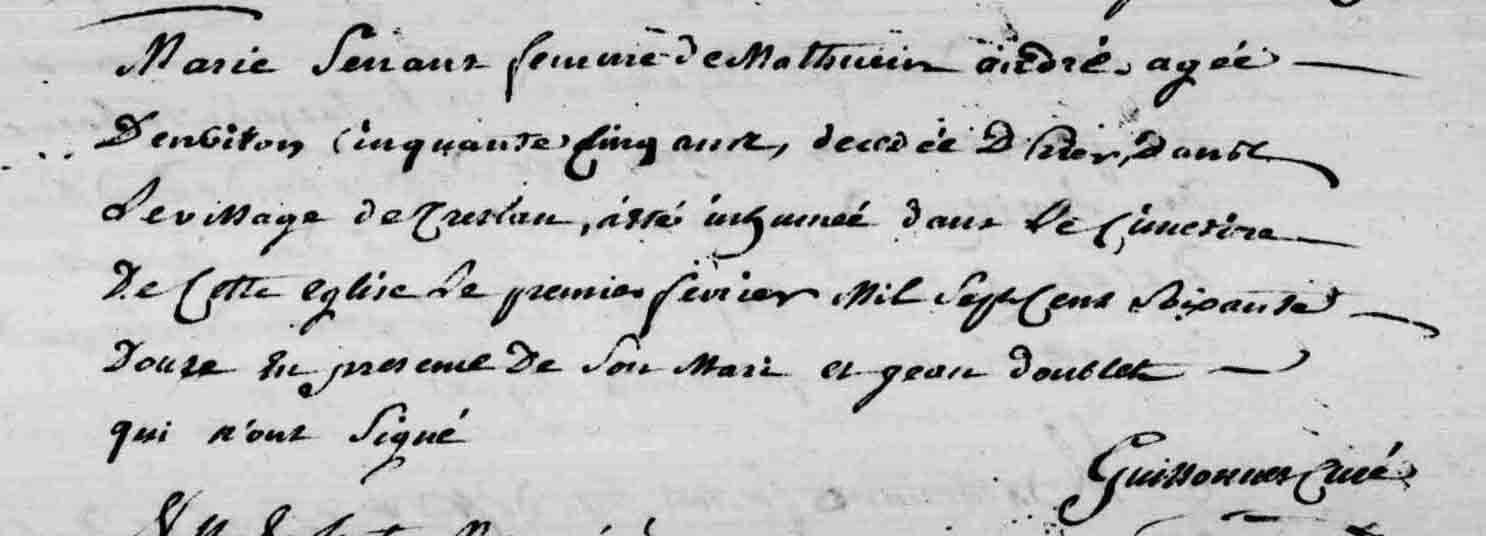 Marie Servant femme de Mathurin andré, agée
D'environ Cinquante Cinq ans, decedée D'hier, Dans
Le village de Treslan, a été inhumée dans Le Cimetire
De Cette eglise Le premier fevrier Mil Sept Cent Soixante
Douze En presence De Son Mari et jean doublet
qui n'ont Signé
Guissonnet Curé